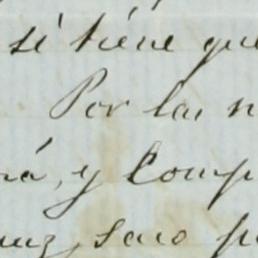 si tiene que
Por las n
rá, y Comp
uz, saco p